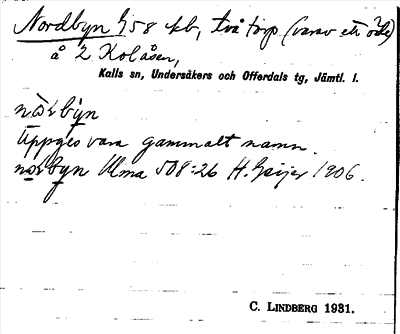 Nordbyn 1/58 kb, två torp (varav ett öde)
å 2 Kolåsen,
Kalls sn, Undersåkers och Offerdals tg, Jämtl. l.
Uppges vara gammalt namn.
Ulma 508:26 H. Geijer 1906.
C. LINDBERG 1931.